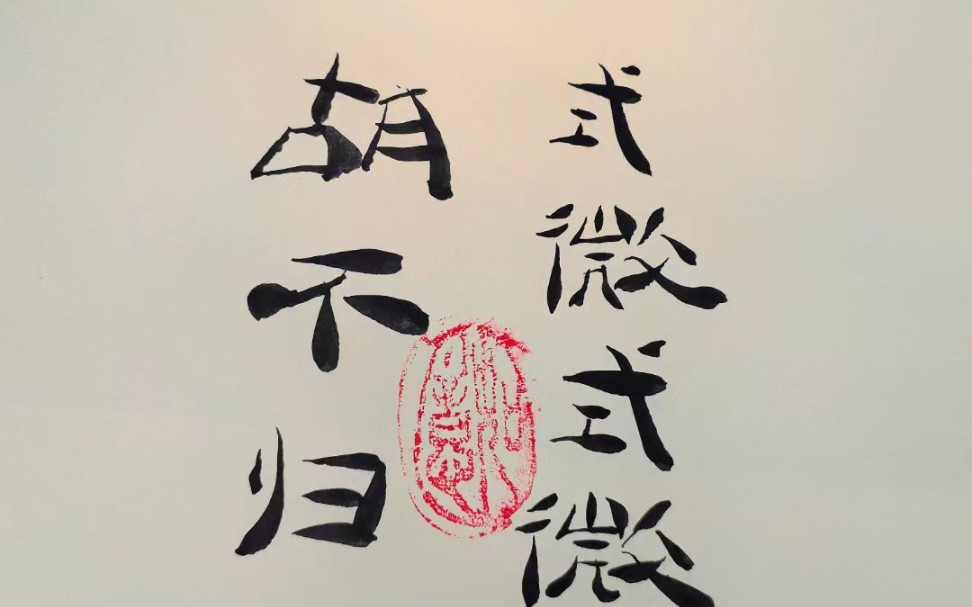 式微式微
胡不归